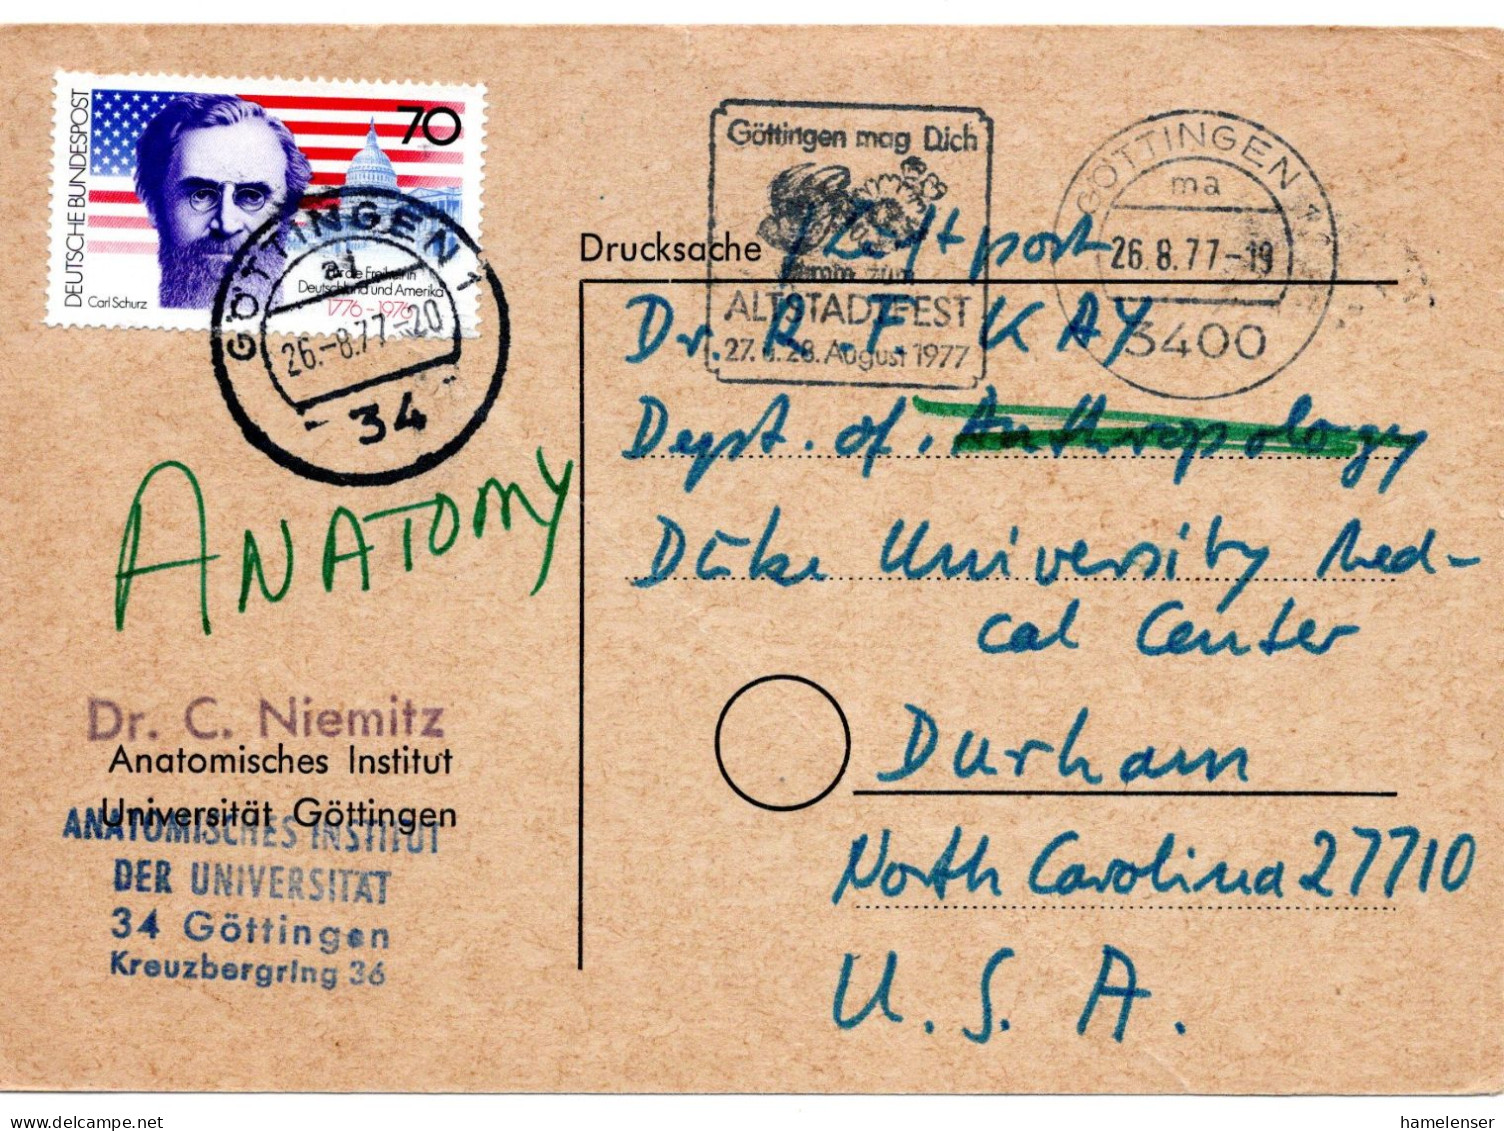 DEUTSCHE BUNDESPOST
70
Carl Schurz
für die Freiheit in
Deutschland und Amerika
1776-1976
GÖTTINGEN 1
26.-8.77-20
34
Göttingen mag Dich
zum
ALTSTADTFEST
27. u. 28. August 1977
GÖTTINGEN 1
ma
26.8.77-19
3400
Drucksache / Luftpost
Dr. R. F. KAY
Dept. of. Anthropology
ANATOMY
Duke University Med-
cal Center
Durham
North Carolina 27710
U. S. A.
Dr. C. Niemitz
Anatomisches Institut
Universität Göttingen
ANATOMISCHES INSTITUT
DER UNIVERSITÄT
34 Göttingen
Kreuzbergring 36
hamelenser